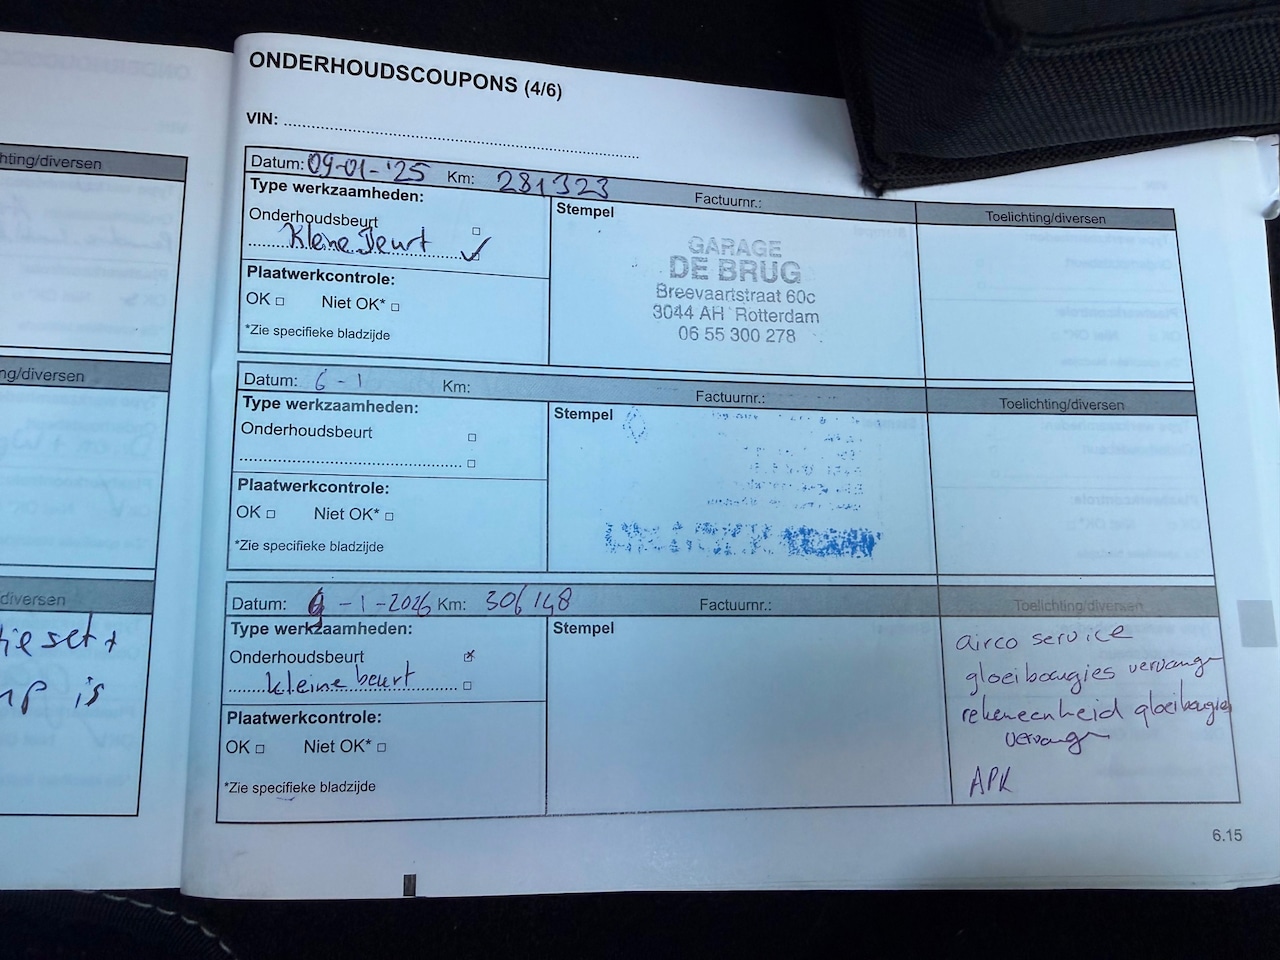 ONDERHOUDSCOUPONS (4/6)
VIN:
Datum: 09-01-'25 Km: 281323 Factuurnr.: Toelichting/diversen
Type werkzaamheden:
Stempel
Onderhoudsbeurt
Kleine Beurt
Plaatwerkcontrole:
OK Niet OK*
*Zie specifieke bladzijde
GARAGE
DE BRUG
Breevaartstraat 60c
3044 AH Rotterdam
06 55 300 278
Datum: 6-1 Km: Factuurnr.: Toelichting/diversen
Type werkzaamheden:
Stempel
Onderhoudsbeurt
Plaatwerkcontrole:
OK Niet OK*
*Zie specifieke bladzijde
Datum: 6-1-2026 Km: 306148 Factuurnr.: Toelichting/diversen
Type werkzaamheden:
Stempel
Onderhoudsbeurt
kleine beurt
Plaatwerkcontrole:
OK Niet OK*
*Zie specifieke bladzijde
airco service
gloeibougies vervangen
rekeneenheid gloeibougies
vervangen
APK
6.15
hting/diversen
ng/diversen
diversen
set +
is